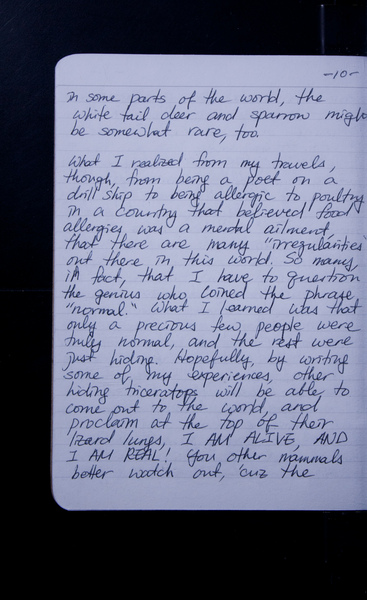 -10-
in some parts of the world, the
white tail deer and sparrow might
be somewhat rare, too.
What I realized from my travels,
though, from being a poet on a
drill ship to being allergic to poultry
in a country that believed food
allergies was a mental ailment,
that there are many "irregularities"
out there in this world. So many,
in fact, that I have to question
the genius who coined the phrase
"normal." What I learned was that
only a precious few people were
truly normal, and the rest were
just hiding. Hopefully, by writing
some of my experiences, other
hiding triceratops will be able to
come out to the world, and
proclaim at the top of their
lizard lungs, I AM ALIVE, AND
I AM REAL! You other mammals
better watch out, 'cuz the